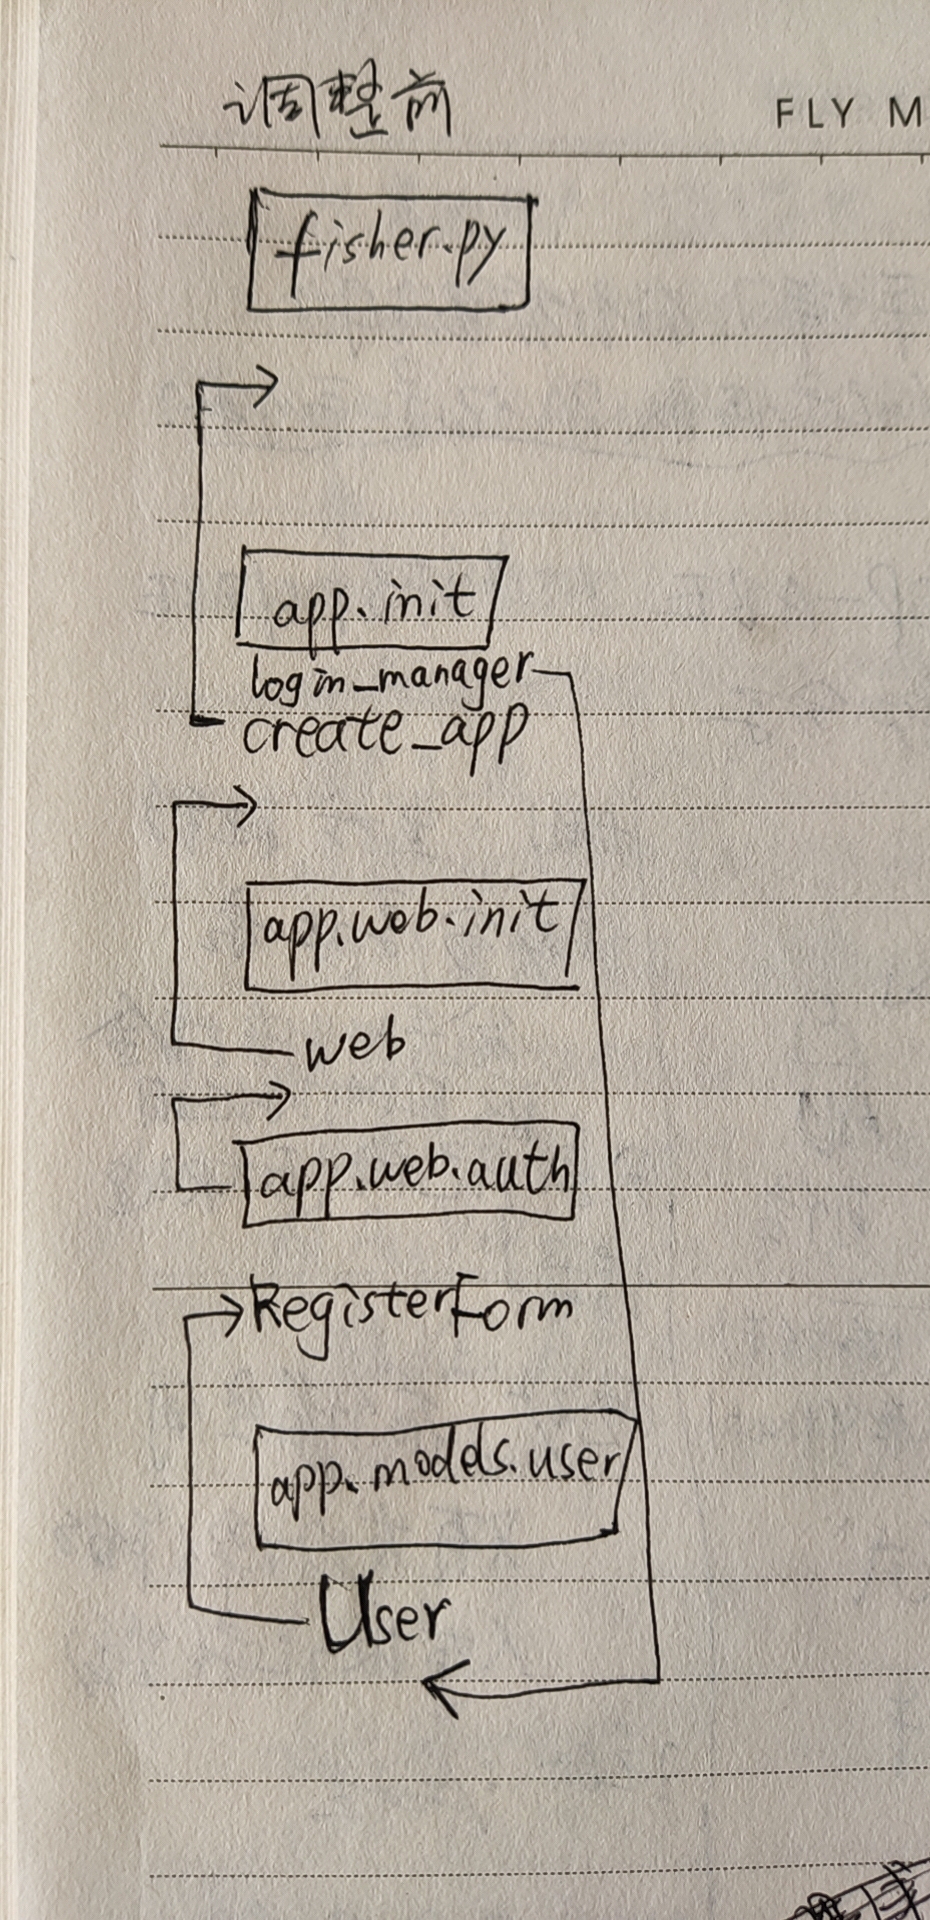 调整前
FLY M
fisher.py
app.init
login_manager
create_app
app.web.init
web
app.web.auth
RegisterForm
app.models.user
User